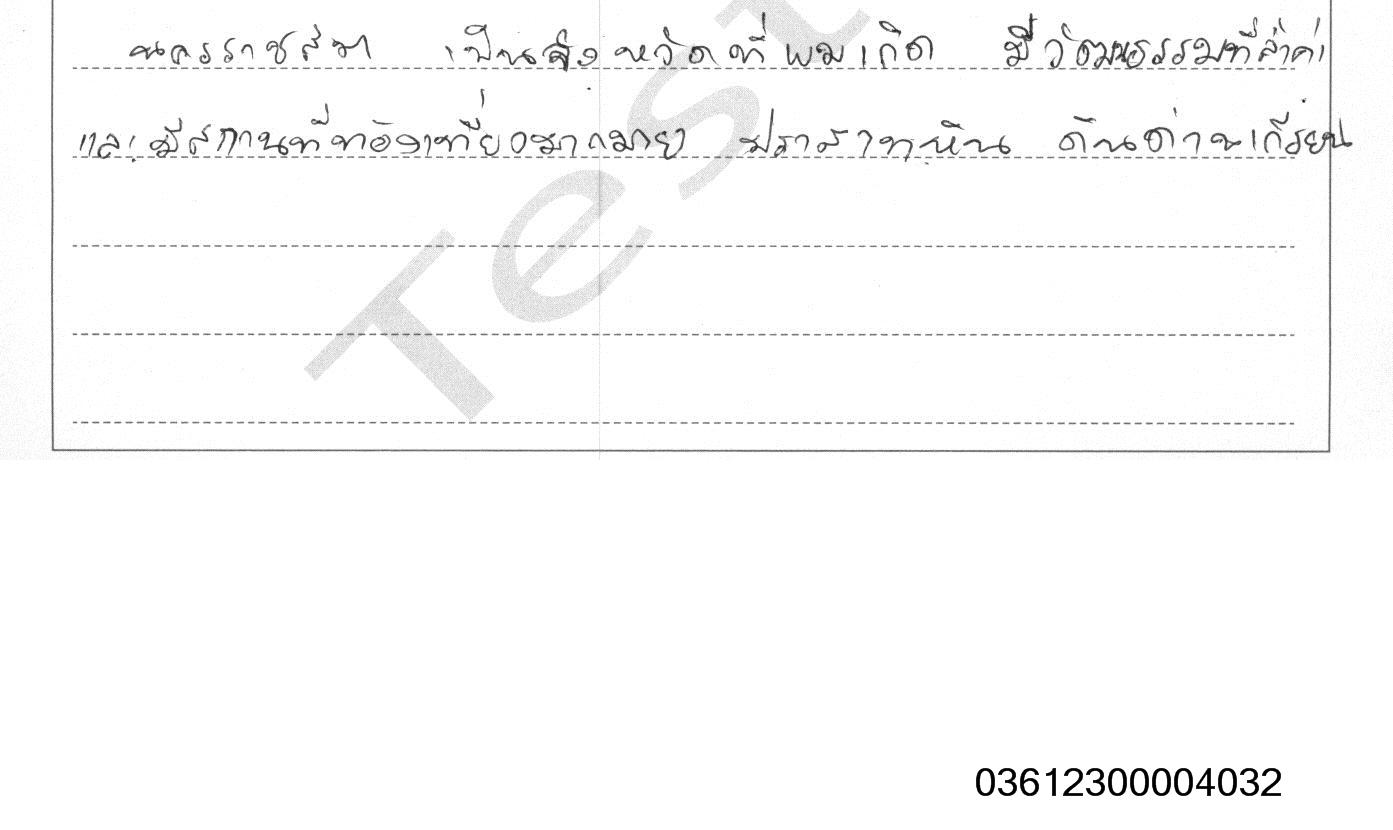 นครราชสีมา เป็นจังหวัดที่ผมเกิด มีวัฒนธรรมที่สำค่า
และมีสถานที่ทอ้งเที่ยวมากมาย ปราสาทหิน ดินด่านเกีรยน
Test
03612300004032